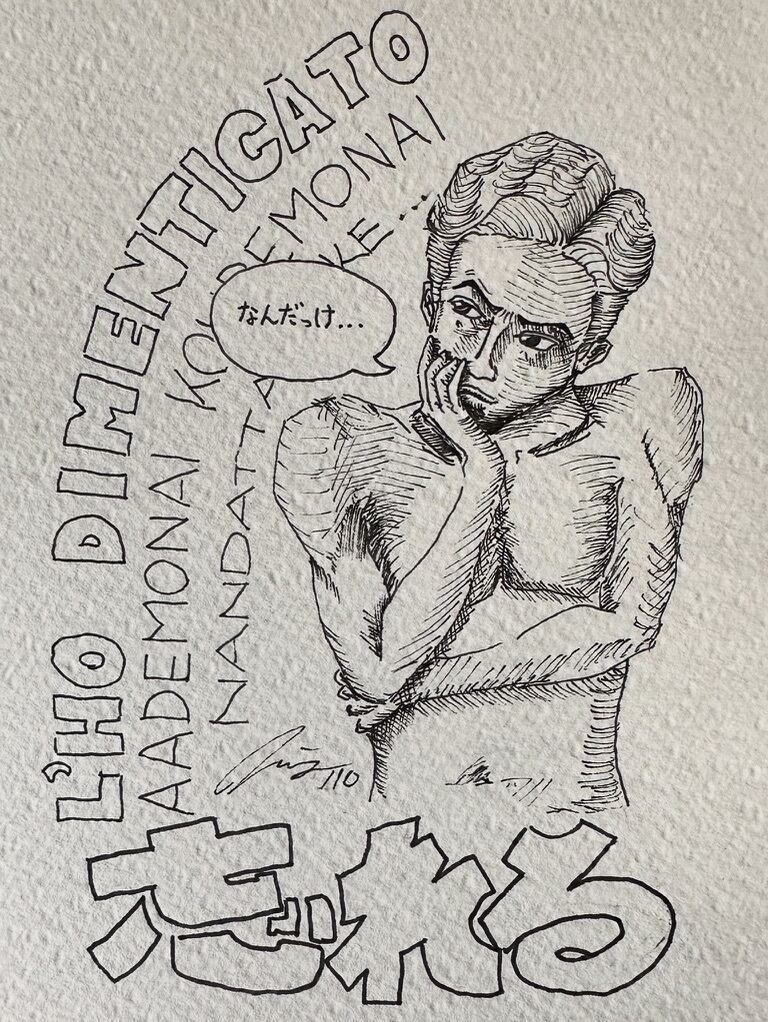 L'HO DIMENTICATO
AADEMONAI KOUDEMONAI
NANDATTAKKE...
なんだっけ...
110
忘れる